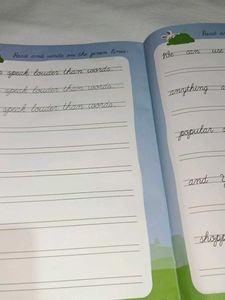 Read and write on the given lines.
speak louder than words.
speak louder than words.
speak louder than words.
Read a
We can use
anything a
popular
and y
shopp